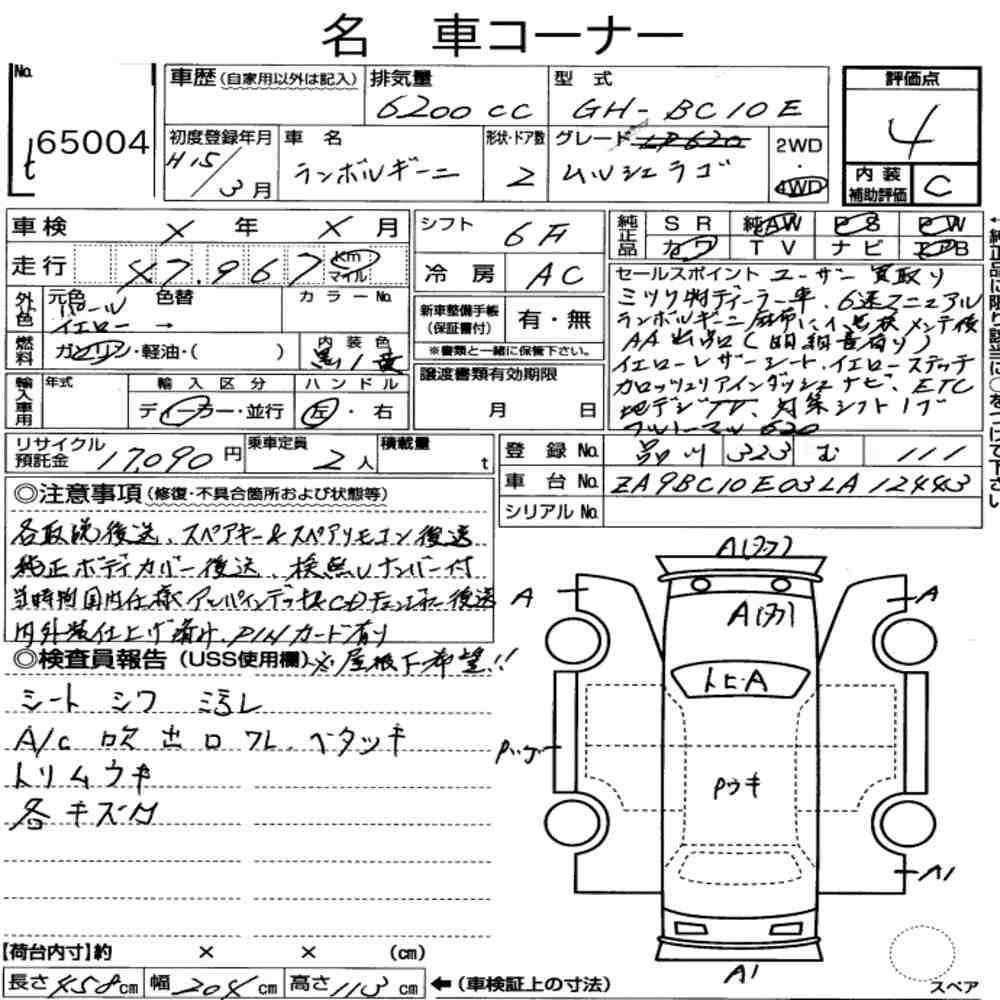 名 車コーナー
No.
65004
t
車歴(自家用以外は記入)
排気量
6200cc
型式
GH-BC10E
評価点
4
初度登録年月
H15/3月
車名
ランボルギーニ
形状・ドア数
2
グレード LP620
ムルシェラゴ
2WD
・
4WD
内装
補助評価
C
車検 × 年 × 月
シフト
6F
純正品
SR 純AW PS PW
カワ TV ナビ エアB
走行
47,967 Km マイル
冷房
AC
セールスポイント ユーザー買取り
ミツワ物ディーラー車、6速マニュアル
ランボルギーニ麻布にて点検メンテ後
AA出品(明細書有り)
イエローレザーシート、イエローステッチ
カロッツェリアインダッシュナビ、ETC
地デジTV、対策シフトノブ
外色
元色 色替
パール
イエロー →
カラーNo.
新車整備手帳
(保証書付)
有・無
※書類と一緒に保管下さい。
燃料
ガソリン・軽油・( )
内装色
黒/黄
輸入車用
年式
輸入区分
ディーラー・並行
ハンドル
左・右
譲渡書類有効期限
月 日
リサイクル
預託金
17,090円
乗車定員
2人
積載量
t
登録No.
品川 323 む 111
車台No.
ZA9BC10E03LA12443
シリアルNo.
◎注意事項(修復・不具合箇所および状態等)
各取説後送、スペアキー&スペアリモコン後送
純正ボディカバー後送、検無しナンバー付
当時物国内仕様アルパインデッキ&CDチェンジャー後送
内外装仕上げ済み、PINカード有り
◎検査員報告(USS使用欄)
※屋根下希望!!
シート シワ コスレ
A/c 吹出口 フレ、ベタツキ
トリムウキ
各キズ凹
A(タワ)
A(タワ)
A
A
トヒ・A
Pウキ
A1
A1
【荷台内寸】約 × × (cm)
長さ458cm 幅204cm 高さ113cm
←(車検証上の寸法)
スペア